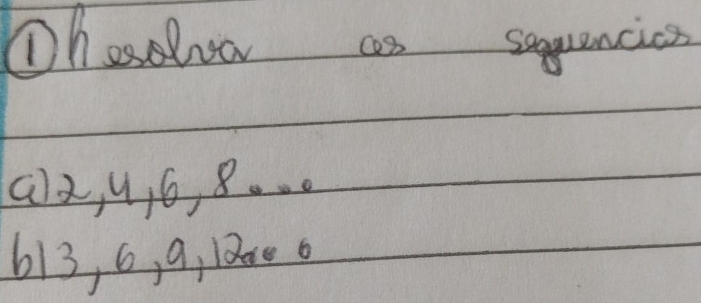 ① Resolva as sequencias
a) 2, 4, 6, 8....
b) 3, 6, 9, 12....